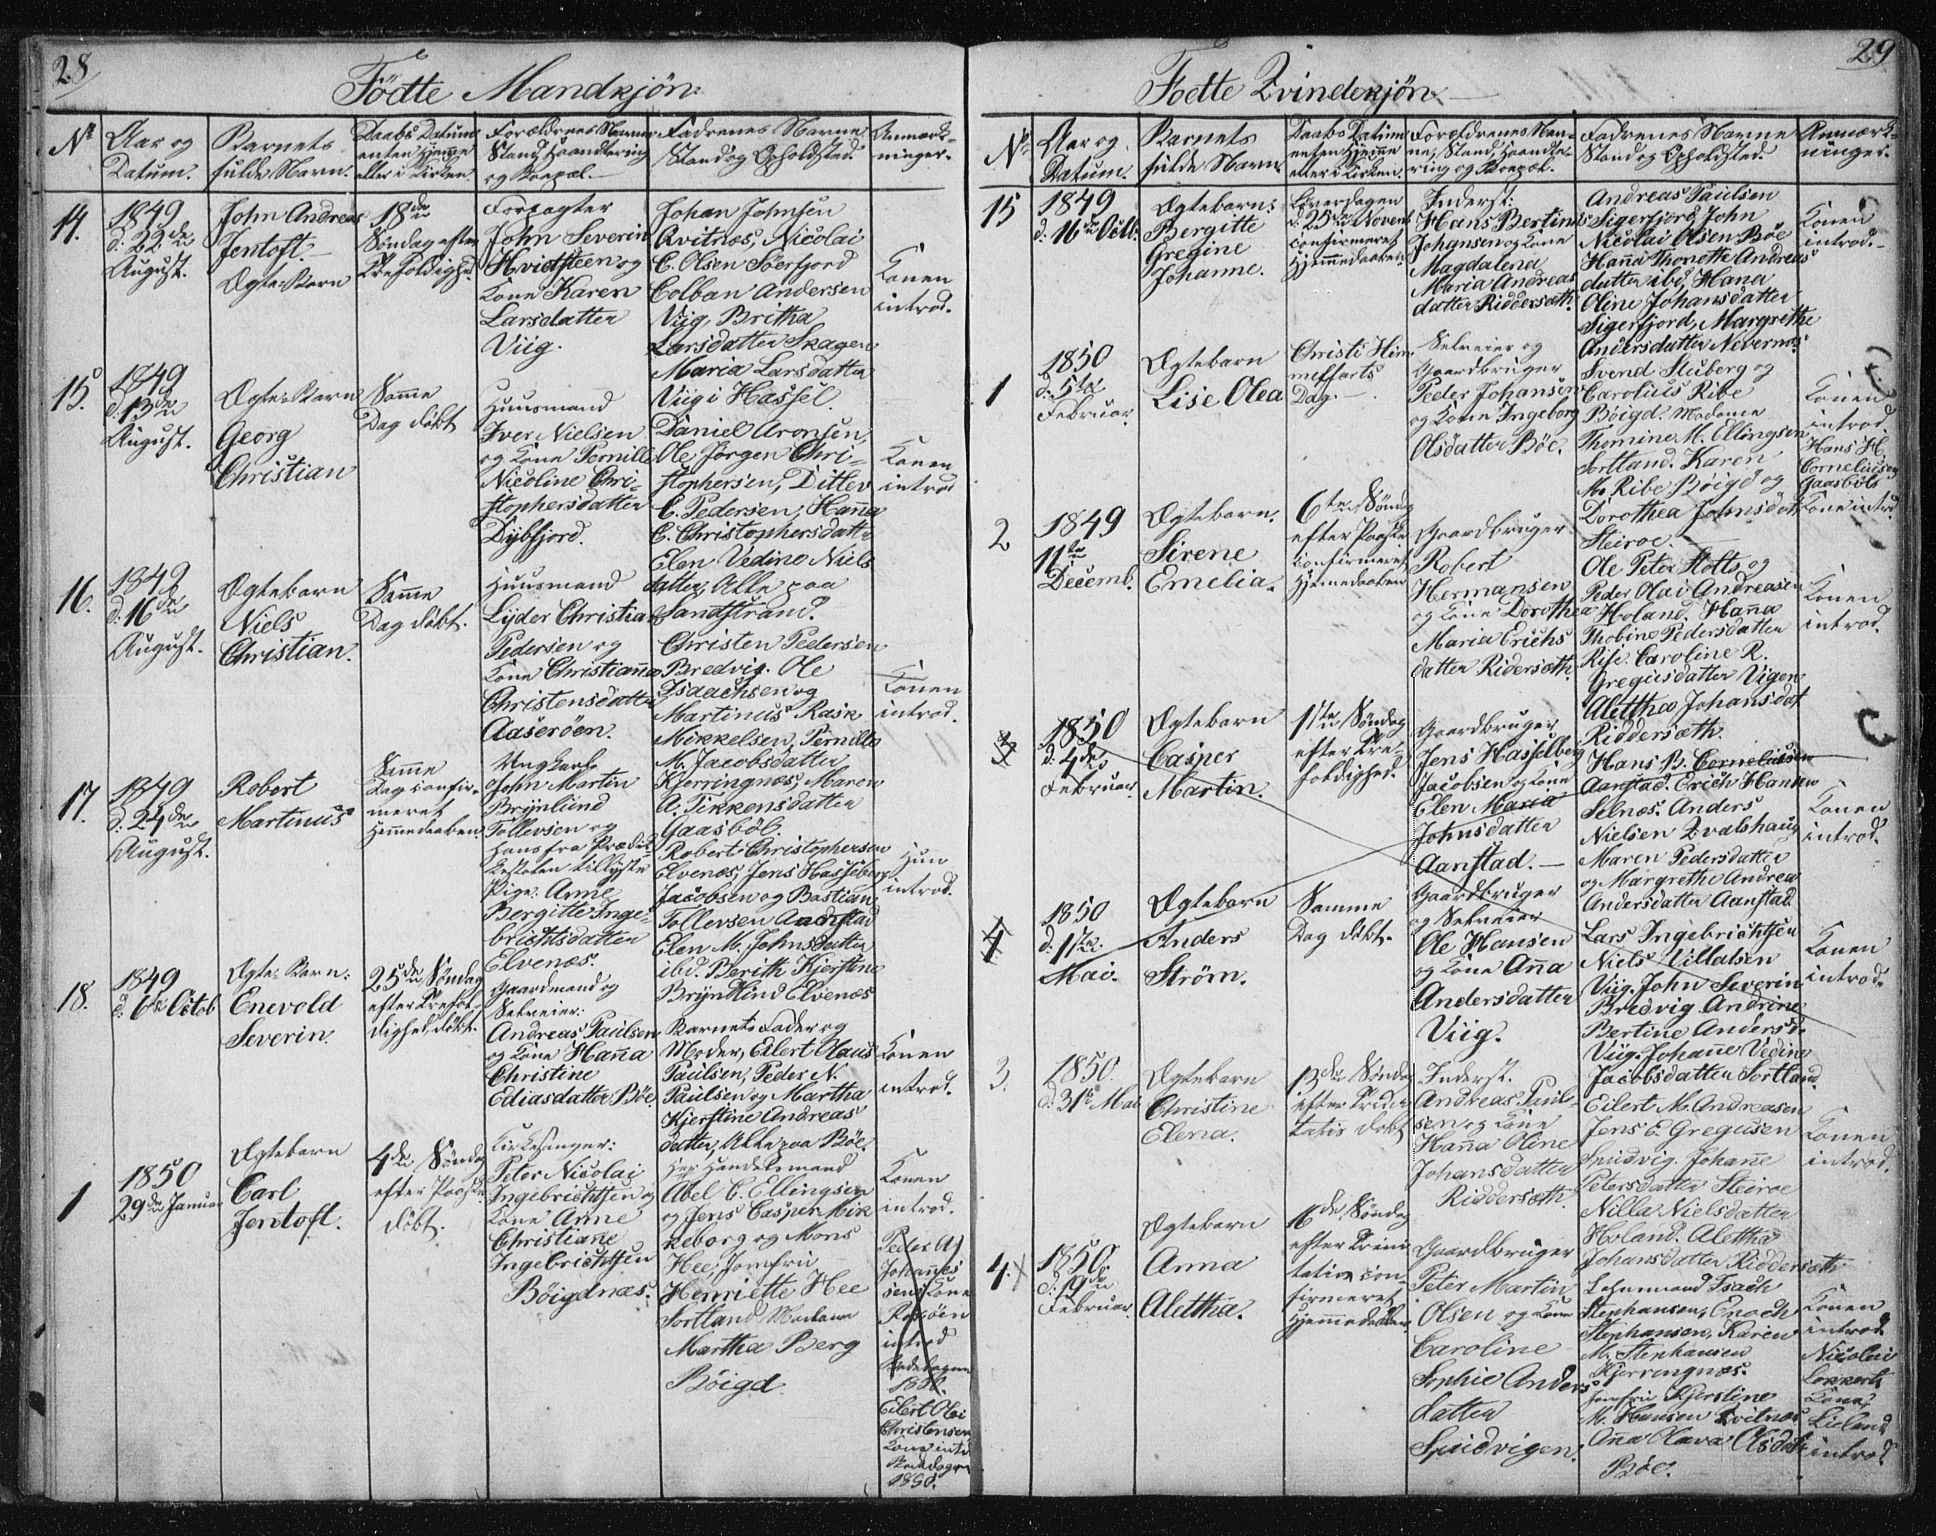 28
Födte Mandkjön:
No
Aar og
Datum.
Barnets
fulde Navn.
Daabs Datum
enten hjemme
eller i Kirken.
Forældrenes Navne
Stand, Haandtering
og Bopæl.
Fadrenes Navne
Stand og Opholdsted.
Anmærk-
ninger.
14.
1849
August.
John Andreas
Jentoft.
Ægte Barn
18de
Søndag efter
Trefoldighed.
Forpagter
John Severin
Hvidsteen og
Kone Karen
Larsdatter
Viig.
Johan Johnsen
Qvitnæs, Nicolai
C. Olsen Söerfjord
Colban Andersen
Viig, Britha
Larsdatter Skagen
Maria Larsdatter
Viig i Hassel.
Konen
introd.
15.
1849
d. 13de
August.
Ægte Barn
Georg
Christian
Samme
Dag döbt
Huusmand
Iver Nielsen
og Kone Pernille
Nicoline Chri-
stophersdatter
Dybfjord.
Daniel Aronsen,
Ole Jörgen Chri-
stophersen, Ditlev
C. Pedersen, Hanna
C. Christophersdatter
Elen Vedine Niels
datter, Alle paa
Sandstrand.
Konen
introd
16.
1849
d. 16de
August.
Ægtebarn
Niels
Christian.
Samme
Dag döbt.
Huusmand
Lyder Christian
Pedersen og
Kone Christianna
Christensdatter
Aaseröen.
Christen Pedersen
Bredvig. Ole
Isaachsen og
Martinus Rask
Mikkelsen, Pernille
M. Jacobsdatter
Kjerringnæs, Maren
A. Tikkensdatter
Gaasböl.
Konen
introd.
17.
1849
d. 24de
August.
Robert
Martinus
Samme
Dag confir-
meret
Hjemmedaaben
Ungkarl
John Martin
Brynlund
Tollevsen og
hans fra Prædik
kestolen tillyste
Pige: Anne
Bergitte Inge-
brichtsdatter
Elvenæs.
Robert Christophersen
Elvenæs, Jens Hasselberg
Jacobsen og Bastian
Tollevsen Aanstad
Elen M. Johnsdatter
ibd. Berith Kjerstine
Bryndlind Elvenæs
Hun
introd.
18.
1849
d. 6te Octob
Ægte Barn:
Enevold
Severin.
25de Søndag
efter Trefol-
dighed döbt.
Gaardmand og
Selveier:
Andreas Paulsen
og Kone Hanna
Christine
Ediasdatter Böe.
Barnets Fader og
Moder, Eilert Olaus
Paulsen, Peder N.
Paulsen og Martha
Kjerstine Andreas
datter, Alle paa Böe.
Konen
introd.
1
1850
29de Januar
Ægtebarn
Carl
Jentoft.
4de Søndag
efter Paaske
döbt.
Kirkesanger:
Peter Nicolai
Ingebrichtsen og
Kone Anne
Christianne
Ingebrichtsen
Böigdnæs.
Hrr Handelsmand
Abel C. Ellingsen
og Jens Casper Mik
keborg og Mons
Hee, Jomfru
Henriette Hee
Sortland Madame
Martha Berg
Böigd.
Konen
introd.
Peder Aj
Johannes
sens Kone
introd
1850.
Eilert Olai
Christensen
Kone introd
1850.
29
Födte Qvindekjön
No
Aar og
Datum.
Barnets
fulde Navn.
Daabs Datum
enten hjemme
eller i Kirken.
Forældrenes Nav-
ne, Stand, Haandte-
ring og Bopæl.
Fadrenes Navne
Stand og Opholdsted.
Anmærk-
ninger.
15
1849
d. 16de Octb.
Ægtebarn:
Bergitte
Gregine
Johanne.
Löverdagen
d. 25de Novemb
confirmeret
Hjemmedaaben.
Inderst:
Hans Bertinus
Johansen og Kone
Magdalena
Maria Andreas
datter Riddersæth.
Andreas Paulsen
Sigerfjord, John
Nicolai Olsen Böe
Hanna Thonette Andreas
datter ibd, Hana
Oline Johansdatter
Sigerfjord, Margrethe
Andersdatter Nevernæs
Konen
introd.
1
1850
d. 5te
Februar.
Ægtebarn
Lise Olea
Christi Him
melfarts
Dag.
Selveier og
Gaardbruger
Peder Johansen
og Kone Ingeborg
Olsdatter Böe.
Svend Stuberg og
Carolius Ribe
Böigd. Madame
Thomine M. Ellingsen
Sortland. Karen
M. Ribe Böigd og
Dorothea Johnsdatter
Steiroe.
Konen
introd.
Hans H.
Corneliusen
Gaasböls
Kone introd.
2
1849
11te
Decemb.
Ægtebarn.
Sirene
Emelia.
6te Søndag
efter Paaske
confirmeret
Hjemmedaaben
Gaardbruger
Robert
Hermansen
og Kone Dorothea
Maria Erichs
datter Ridersæth
Ole Peter Holts og
Peder Olai Andreasen
Holand. Hanna
Thobine Pedersdatter
Rise. Caroline R.
Gregusdatter Vigen
Alettha Johansdat
Riddersæth.
Konen
introd.
3
1850
d. 4de
Februar.
Ægtebarn
Casper
Martin.
1ste Søndag
efter Tre-
foldighed.
Gaardbruger
Jens Hasselberg
Jacobsen og Kone
Elen Maria
Johnsdatter
Aanstad.
Hans B. Corneliusen
Aanstad. Erich Hansen
Selnæs. Anders
Nielsen Kvalshaug
Maren Pedersdatter
og Margrethe Andrea
Andersdatter Aanstad
Konen
introd.
4
1850
d. 1ste
Mai.
Ægtebarn
Anders
Ström.
Samme
Dag döbt.
Gaardbruger
og Selveier
Ole Hansen
og Kone Anna
Andersdatter
Viig.
Lars Ingebrichtsen
Niels Villatsen
Viig. John Severin
Bredvig Andrine
Bertine Andersd.
Viig. Johanne Vedine
Jacobsdatter Sortland.
Konen
introd.
3.
1850.
d. 31te Mai
Ægtebarn
Christine
Elena.
13de Søndag
efter Trini
tatis döbt
Inderst.
Andreas Paul-
sen og Kone
Hanna Oline
Johansdatter
Riddersæth.
Eilert M. Andreasen
Jens E. Gregusen
Spudvig. Johanne
Petersdatter Steiroe
Nilla Nielsdatter
Holand. Alettha
Johansdatter Riddersæth
Konen
introd.
4.
1850.
d. 19de
Februar.
Ægtebarn
Anna
Alettha.
16de Søndag
efter Trini
tatis con-
firmeret
Hjemmedaaben.
Gaardbruger
Peter Martin
Olsen og Kone
Caroline
Sophie Anders
datter
Spudvigen.
Lehnsmand Isach
Stephansen, Enoch
Stephansen, Karen
M. Stephansen
Kjerringnæs.
Jomfru Kjerstine
M. Hansen Kvitnæs
Anna Olava Olsdatter
Böe.
Konen
introd.
Nicolai
Kone,
Lieland
introd